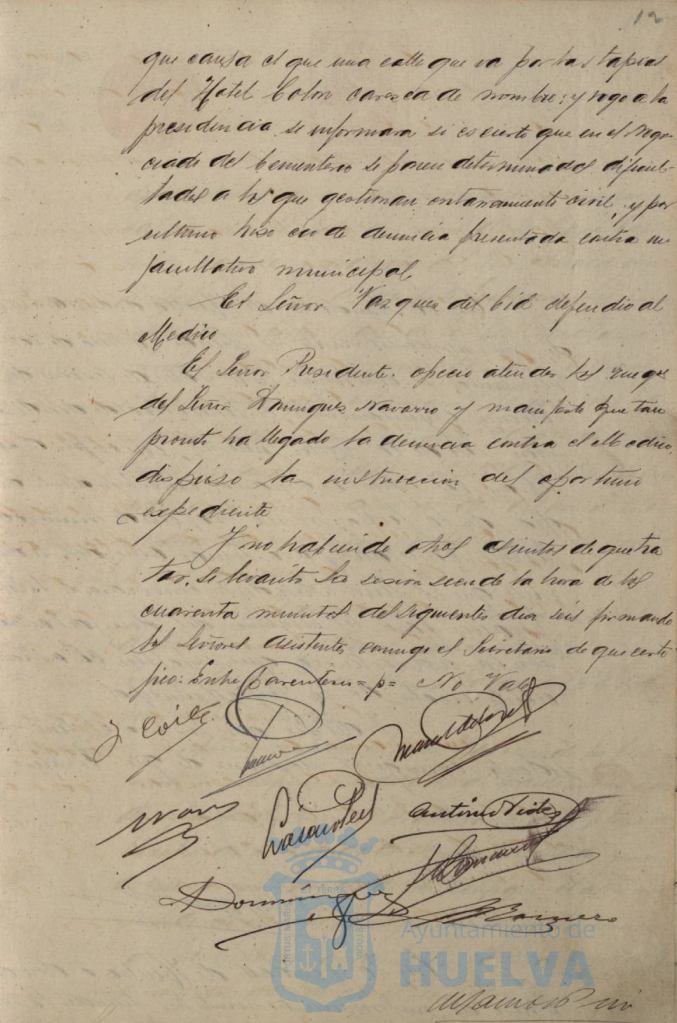 12
que causa el que una calle que va por las tapias
del Hotel Colon caresca de nombre; y rogo a la
presidencia se informara si es cierto que en el Nego-
ciado del Cementerio se ponen determinadas dificul-
tades a los que gestionan enterramiento civil, y por
ultimo hiso eco de denuncia presentada contra un
facultativo municipal
El Señor Vazques del Cid defendio al
Medico
El Señor Presidente ofrecio atender los ruegos
del Señor Domingues Navarro y manifesto que tan
pronto ha llegado la denuncia contra el Medico,
dispuso la instruccion del oportuno
expediente
Y no habiendo otros asuntos de que tra
tar, se levanto la sesion siendo la hora de los
cuarenta minutos del siguientes dia seis firmando
los Señores Asistentes conmigo el Secretario de que certi
fico: Entre parentesis = p = No Vale
J Coito
Antonio
Dominguez
Romero
Ayuntamiento de
HUELVA